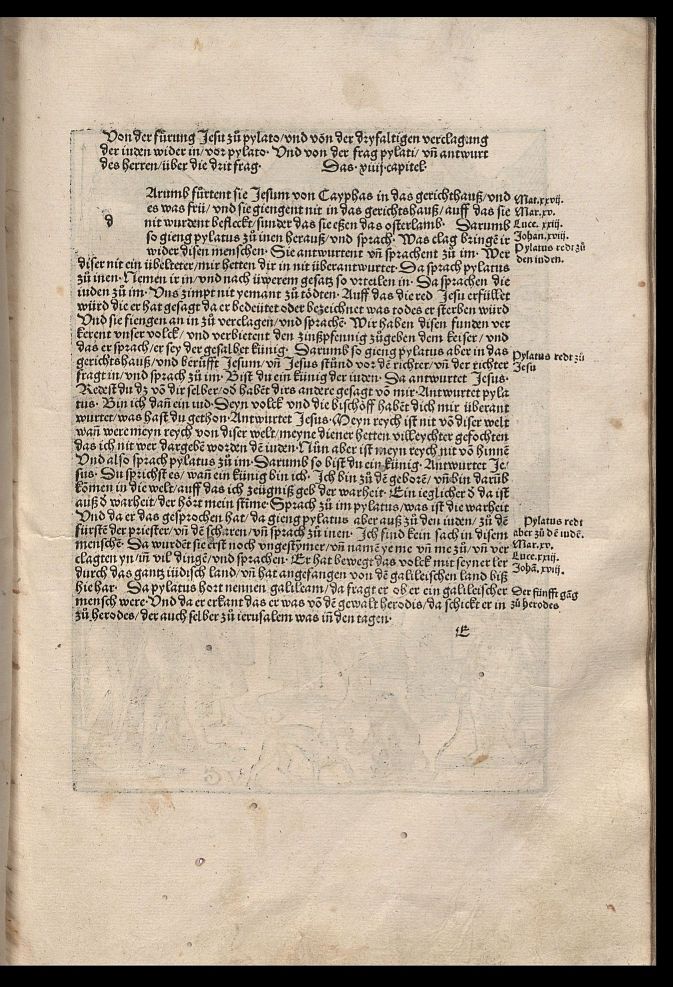 Von der fürung Jesu zů pylato/vnd võn der dryfaltigen verclagung
der iuden wider in/vor pylato· Vnd von der frag pylati/vñ antwurt
des herren/über die drit frag· Das·xiiij·capitel·
d
Arumb fürtent sie Jesum von Cayphas in das gerichthauß/vnd
es was frü/vnd sie giengent nit in das gerichtshauß/auff das sie
nit wurdent befleckt/sunder das sie eßen das osterlamb· Darumb
so gieng pylatus zů inen herauß/vnd sprach· Was clag bringẽ ir
wider disen menschen· Sie antwurtent vñ sprachent zů im· Wer
diser nit ein übelteter/mir hetten dir in nit überantwurtet·Da sprach pylatus
zů inen·Nemen ir in/vnd nach üwerem gesatz so vrteilen in·Da sprachen die
iuden zů im·Vns zimpt nit yemant zů tödten· Auff das die red Jesu erfüllet
würd die er hat gesagt da er bedeütet oder bezeichnet was todes er sterben würd
Vnd sie fiengen an in zů verclagen/vnd sprachẽ· Wir haben disen funden ver
kerent vnser volck/vnd verbietent den zinßpfennig zůgeben dem keiser/vnd
das er sprach/er sey der gesalbet künig· Darumb so gieng pylatus aber in das
gerichtshauß/vnd berüfft Jesum/vñ Jesus stünd vor dẽ richter/vñ der richter
fragt in/vnd sprach zů im· Bist du ein künig der iuden· Da antwurtet Jesus·
Redest du dz võ dir selber/od habẽt dirs andere gesagt võ mir·Antwurtet pyla
tus· Bin ich dañ ein iud·Deyn volck vnd die bischöff habẽt dich mir überant
wurtet/was hast du gethon·Antwurtet Jesus·Meyn reych ist nit võ diser welt
wañ were meyn reych von diser welt/meyne diener hetten villeychter gefochten
das ich nit wer dargebẽ worden dẽ iuden·Nün aber ist meyn reych nit võ hinnẽ
Vnd also sprach pylatus zů im·Darumb so bist du ein künig·Antwurtet Je/
sus· Du sprichst es/wañ ein künig bin ich· Ich bin zů dẽ geborẽ/vñ bin darüb
kõmen in die welt/auff das ich zeügniß geb der warheit· Ein ieglicher d̄ da ist
auß d̄ warheit/der hört mein stime·Sprach zů im pylatus/was ist die warheit
Vnd da er das gesprochen hat/da gieng pylatus aber auß zů den iuden/zů dẽ
fürstẽ der priester/vñ dẽ scharen/vñ sprach zů inen· Ich find kein sach in disem
menschẽ· Da wurdẽt sie erst noch vngestymer/vñ namẽ ye me vñ me zů/vñ ver
clagten yn/iñ vil dingẽ/vnd sprachen· Er hat bewegt das volck mit seyner ler
durch das gantz iüdisch land/vñ hat angefangen von dẽ galileischen land biß
hie har· Da pylatus hort nennen galileam/da fragt er ob er ein galileischer
mensch were·Vnd da er erkant das er was võ dẽ gewalt herodis/da schickt er in
zů herodes/der auch selber zů ierusalem was iñ den tagen·
E
Mat.xxvij.
Mar.xv.
Luce.xxiij.
Johan.xviij.
Pylatus redt zů
den iuden.
Pylatus redt zů
Jesu
Pylatus redt
aber zů dẽ iudẽ.
Mar.xv.
Luce.xxiij.
Johã.xviij.
Der fünfft gãg
zů herodes